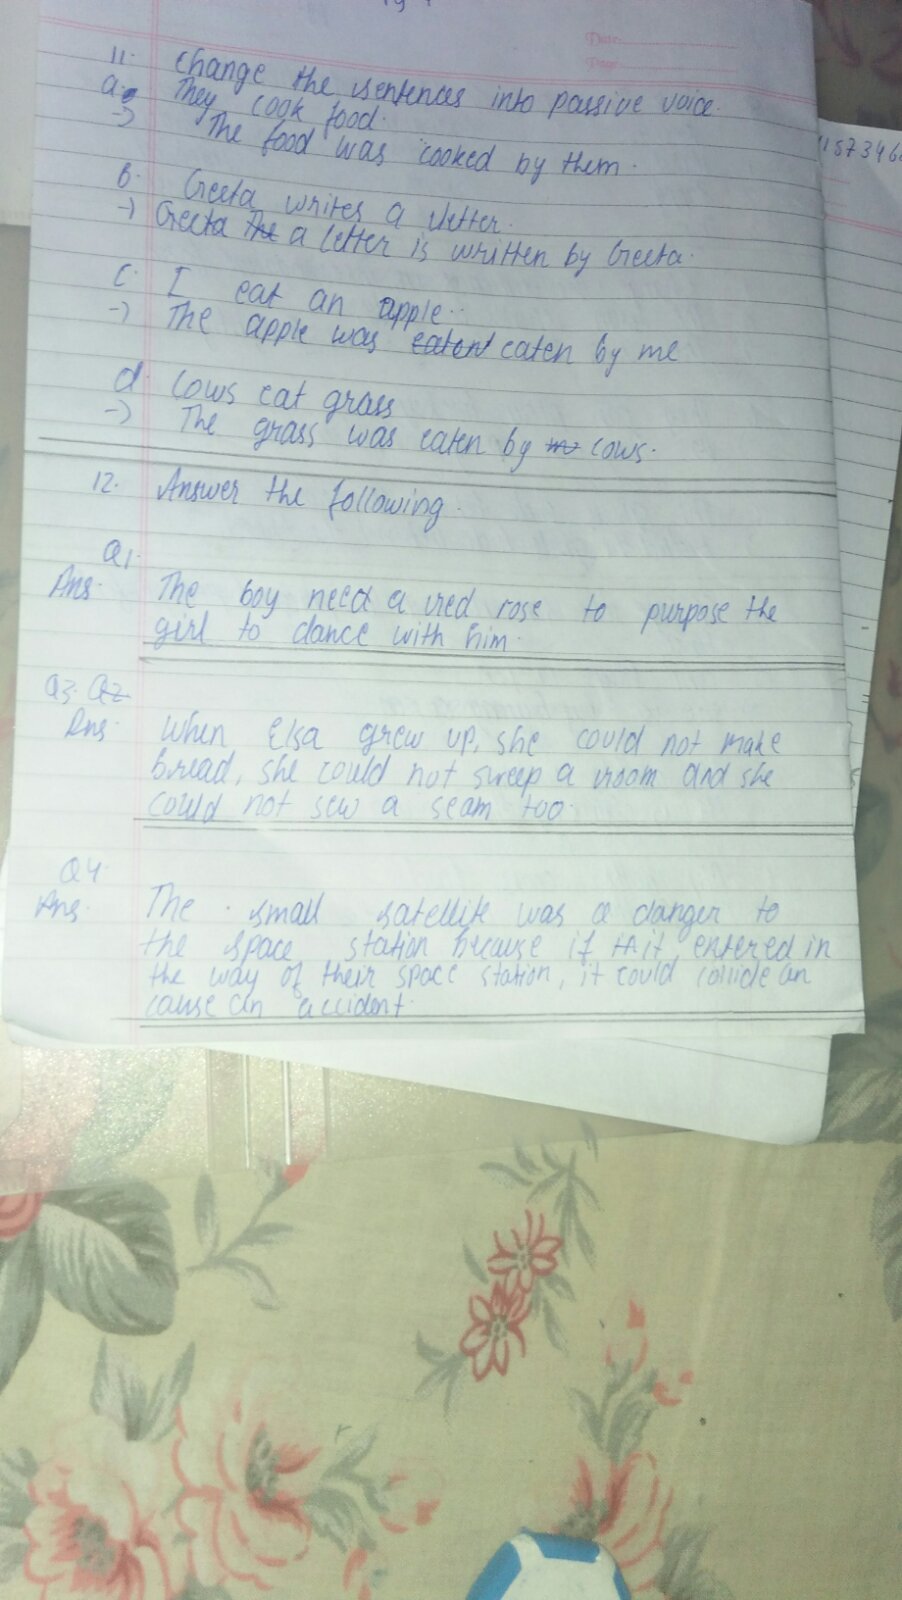 Date
Page
11. Change the sentences into passive voice.
a. They cook food.
→ The food was cooked by them.
b. Geeta writes a letter.
→ Geeta The a letter is written by Geeta.
c. I eat an apple..
→ The apple was eaten by me
d. Cows eat grass
→ The grass was eaten by cows.
12. Answer the following.
Q1.
Ans. The boy need a red rose to purpose the
girl to dance with him.
Q3. Q2
Ans. When Elsa grew up, she could not make
bread, she could not sweep a room and she
could not sew a seam too.
Q4.
Ans. The small satellite was a danger to
the space station because if it entered in
the way of their space station, it could collide an
cause an accident.